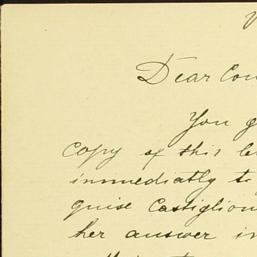 Dear Cou
You g
copy of this le
immediatly to
quise Castiglion
her answer in